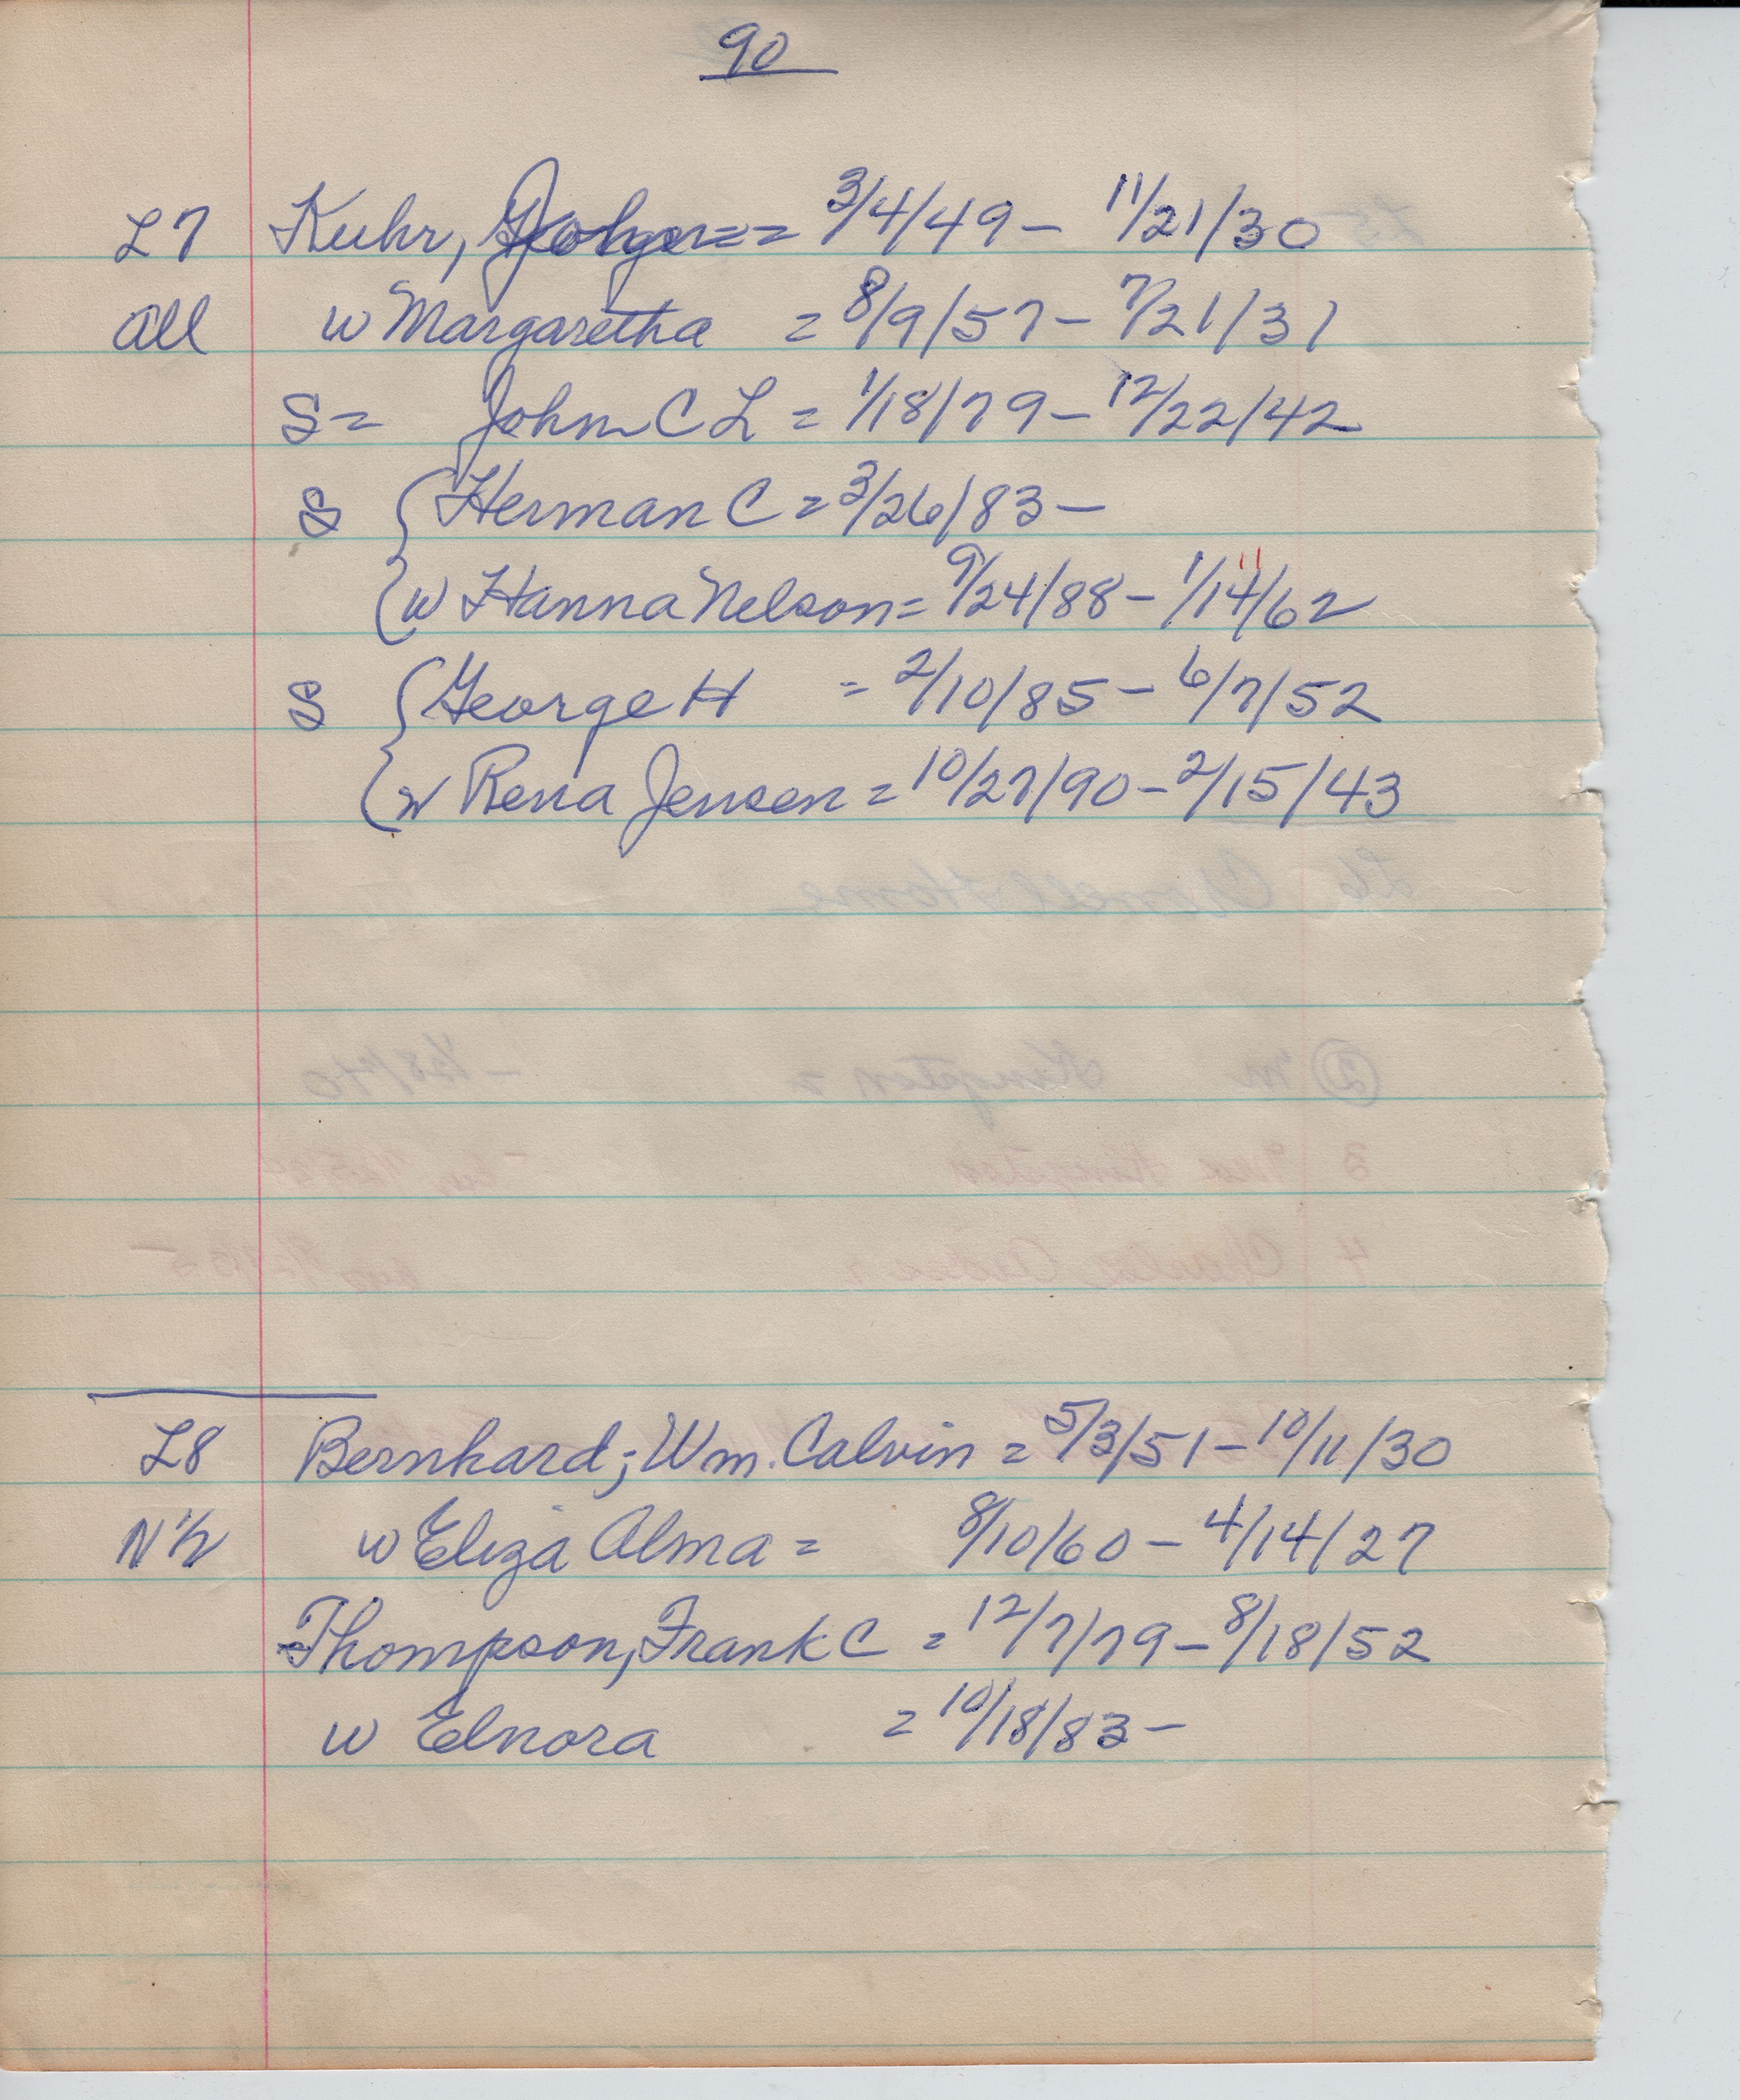 90
L7 Kuhr, John == 3/4/49 - 11/21/30
All w Margaretha = 8/9/57 - 7/21/31
S = John C L = 1/18/79 - 12/22/42
S { Herman C = 3/26/83 -
{ w Hanna Nelson = 9/24/88 - 1/14/62
11
S { George H = 2/10/85 - 6/7/52
{ w Rena Jensen = 10/27/90 - 2/15/43
L8 Bernhard, Wm. Calvin = 5/3/51 - 10/11/30
N 1/2 w Eliza Alma = 8/10/60 - 4/14/27
Thompson, Frank C = 12/7/79 - 8/18/52
w Elnora = 10/18/83 -